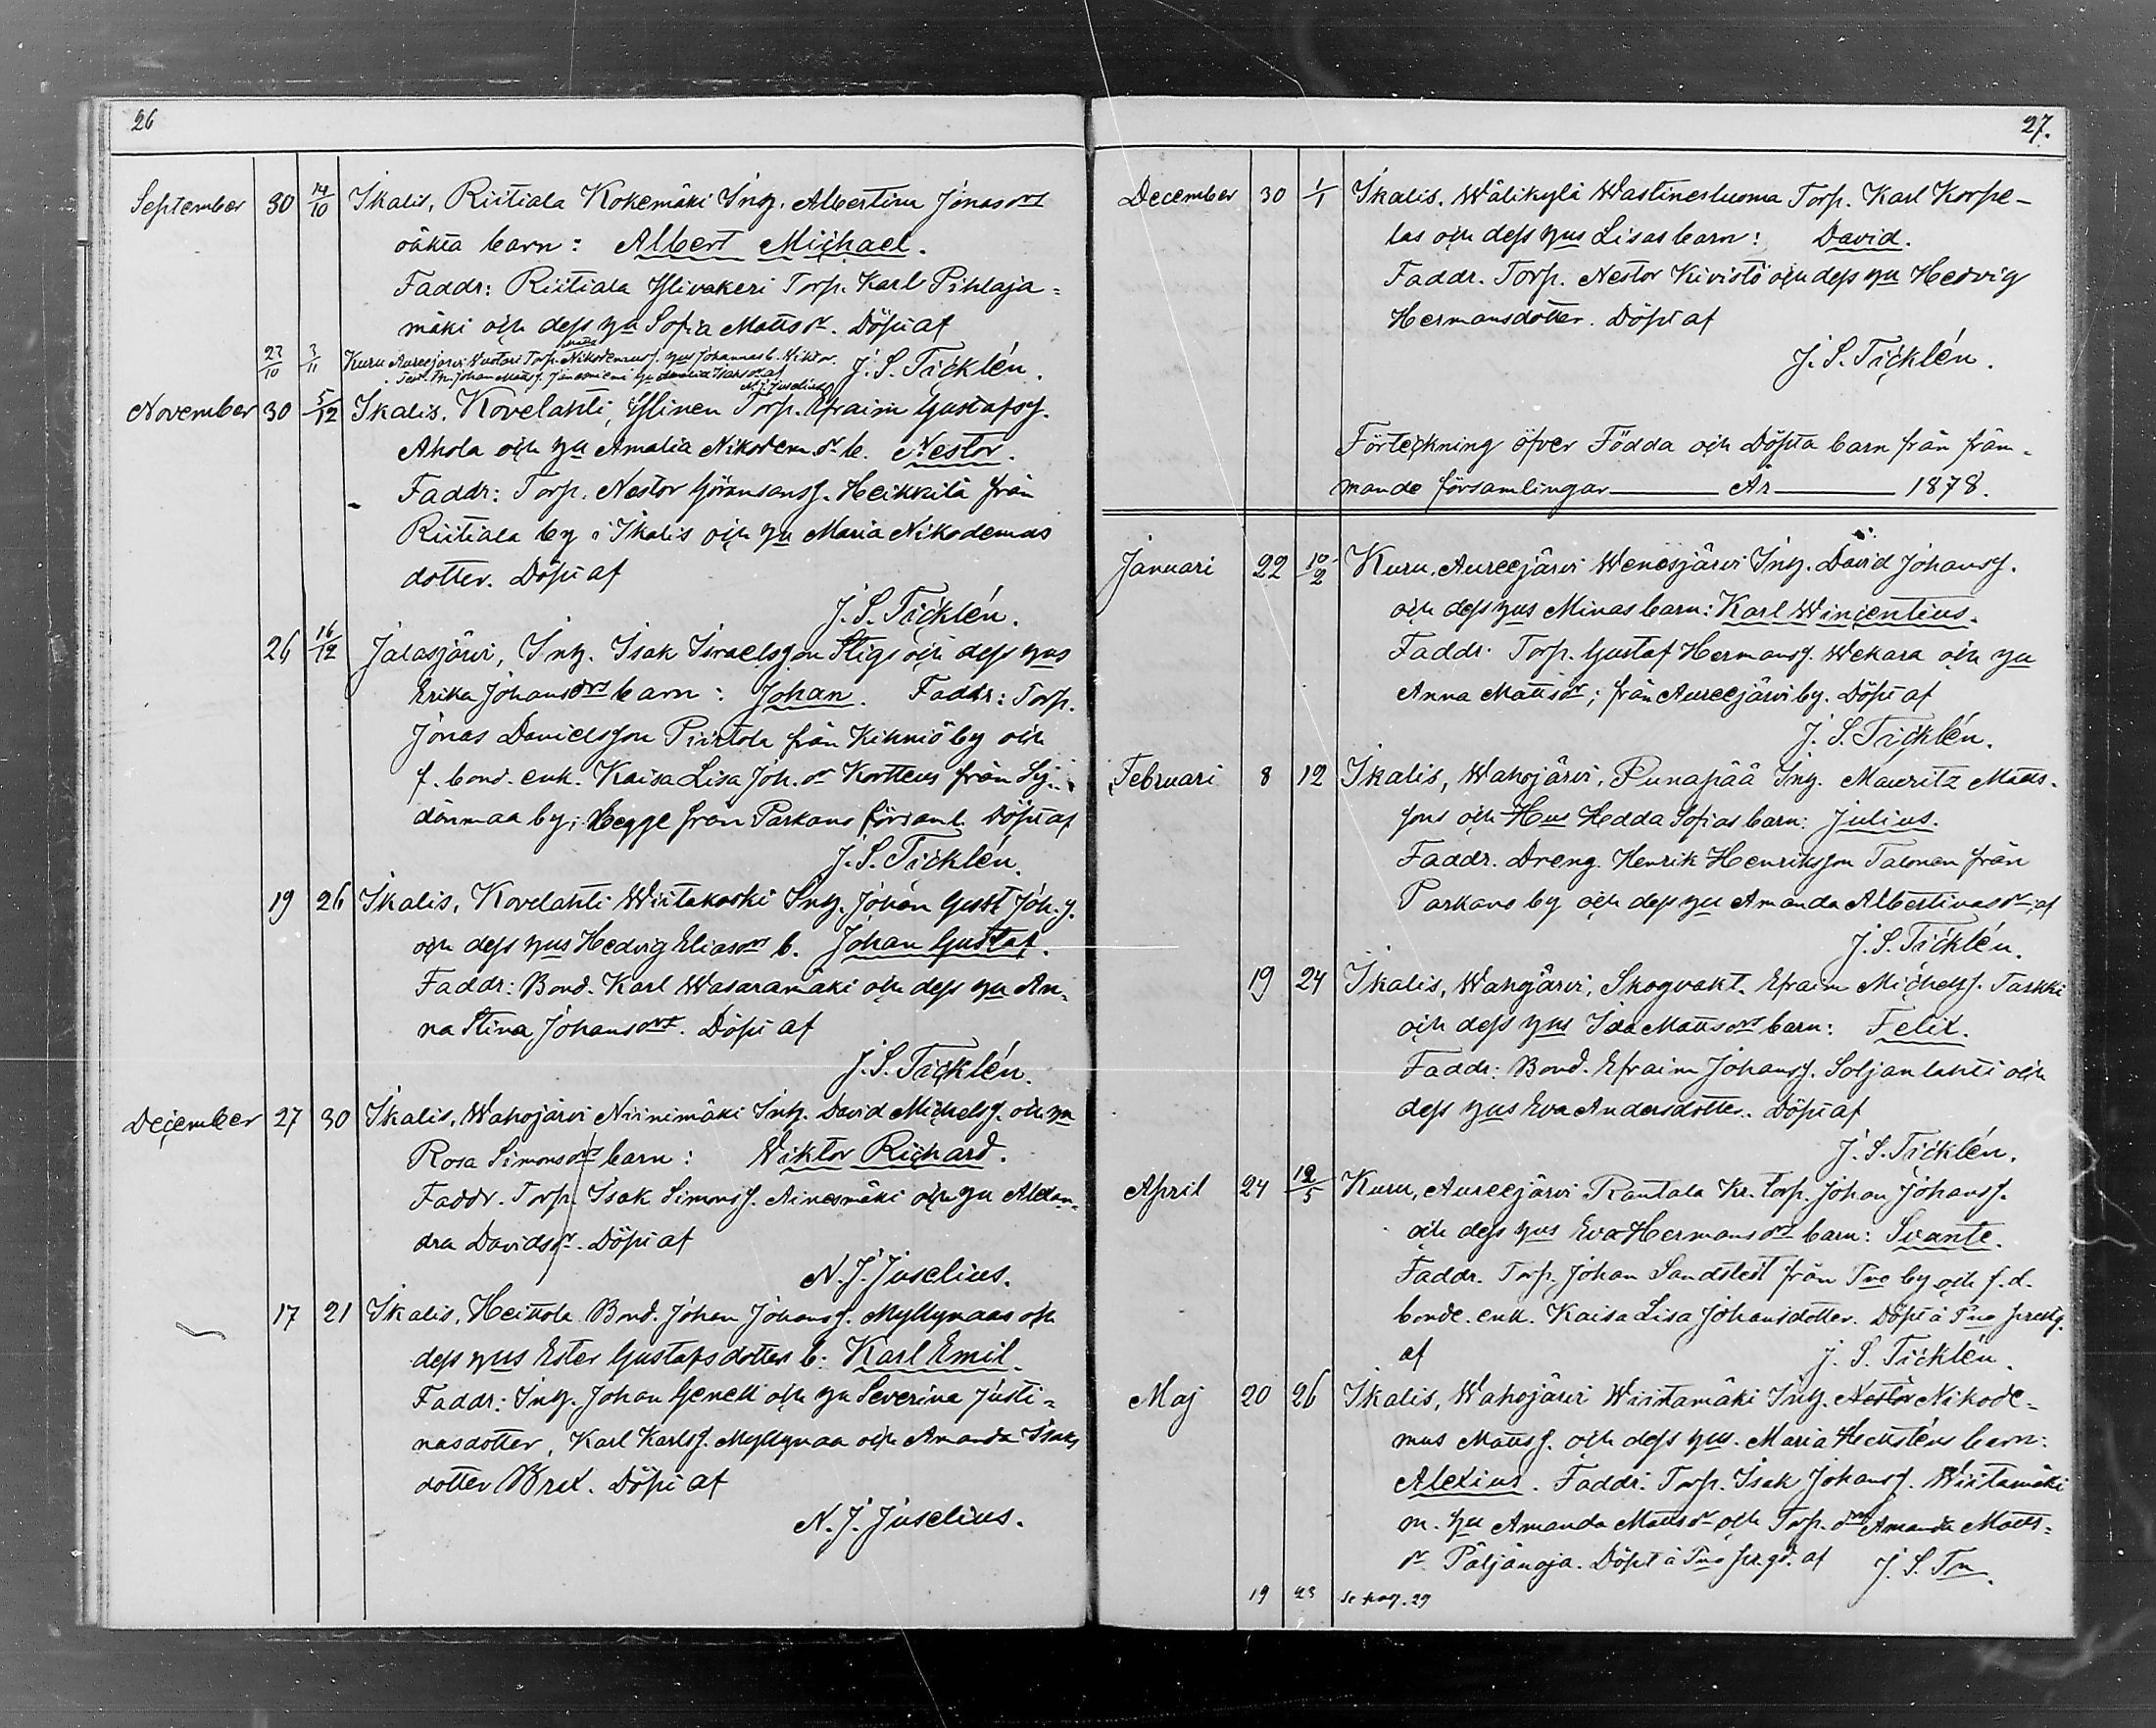 26
September 30 14/10 Ikalis, Riitiala Kokemäki Inh. Albertina Jonasdrs
oäkta barn: Albert Michael.
Faddr: Riitiala Ylivakeri Torp. Karl Pihlaja=
mäki och dess hu Sofia Mattsdr. Döpt af
J. S. Ticklén.
23/10 3/11 Kuru Aureejärvi Torp. Nikodemuss. hus Johannas b. Viktor.
N. J. Juselius
November 30 5/12 Ikalis, Kovelahti, Ylinen Torp. Efraim Gustafss.
Ahola och hu Amalia Nikodem.dr b. Nestor.
Faddr: Torp. Nestor Göranss. Heikkilä från
Riitiala by i Ikalis och hu Maria Nikodemus
dotter. Döpt af
J. S. Ticklén.
26 16/12 Jalasjärvi, Inh. Isak Israelsson Stigs och dess hus
Erika Johansdrs barn: Johan. Faddr: Torp.
Jonas Davidsson Piirtola från Kihniö by och
f. bond. enk. Kaisa Lisa Joh. dr Kortteus från Sy-
dänmaa by; begge från Parkano församl. Döpt af
J. S. Ticklén.
19 26 Ikalis, Kovelahti Wiitakoski Inh. Johan Gust Joh. s.
och dess hus Hedvig Eliasdrs b. Johan Gustaf.
Faddr: Bond. Karl Wasaramäki och dess hu An=
na Stina Johansdrs. Döpt af
J. S. Ticklén.
December 27 30 Ikalis, Wahojärvi Niinimäki Inh. David Michelss. och hu
Rosa Simonsdrs barn: Wiktor Richard.
Faddr. Torp. Isak Simonss. Ainesmäki och hu Alexan=
dra Davidsdr. Döpt af
N. J. Juselius.
17 21 Ikalis, Heittola Bond. Johan Johanss. Myllynaas och
dess hus Ester Gustafsdotters b: Karl Emil.
Faddr: Inh. Johan Genell och hu Severina Justi=
nasdotter, Karl Karlss. Myllynaa och Amanda Isaks
dotter Brax. Döpt af
N. J. Juselius.
27.
December 30 1/1 Ikalis, Wälikylä Wastinesluoma Torp. Karl Korpe-
las och dess hus Lisas barn: David.
Faddr. Torp. Nestor Kivistö och dess hu Hedvig
Hermansdotter. Döpt af
J. S. Ticklén.
Förteckning öfver Födda och Döpta barn från främ-
mande församlingar År 1878.
Januari 22 10/2 Kuru, Aureejärvi Wenesjärvi Inh. David Johanss.
och dess hus Minas barn: Karl Wincentius.
Faddr. Torp. Gustaf Hermanss. Wekara och hu
Anna Mattsdr; från Aureejärvi by. Döpt af
J. S. Ticklén.
Februari 8 12 Ikalis, Wahojärvi, Punapää Inh. Mauritz Matts-
sons och Hus Hedda Sofias barn: Julius.
Faddr. Dreng. Henrik Henriksson Talonen från
Parkano by och dess hu Amanda Albertinasdr; af
J. S. Ticklén.
19 24 Ikalis, Wahojärvi, Skogvakt. Efraim Michelss. Taskki
och dess hus Ida Mattsdrs barn: Felix.
Faddr: Bond. Efraim Johanss. Soljanlahti och
dess hus Eva Andersdotter. Döpt af
J. S. Ticklén.
April 24 12/5 Kuru, Aureejärvi Rantala Kr. torp. Johan Johanss.
och dess hus Eva Hermansdrs barn: Svante.
Faddr. Torp. Johan Sandstedt från Pno by och f.d.
bonde. enk. Kaisa Lisa Johansdotter. Döpt å Pno prestg.
af J. S. Ticklén.
Maj 20 26 Ikalis, Wahojärvi Wiitamäki Inh. Nestor Nikode=
mus Mattss. och dess hus. Maria Hellsténs barn:
Alexius. Faddr: Torp. Isak Johanss. Wiitamäki
m. hu Amanda Mattsdr och Torp. drn Amanda Matts=
dr Päljänoja. Döpt å Pno pr.gd. af J. S. Tn.
19 23 Se pag. 29